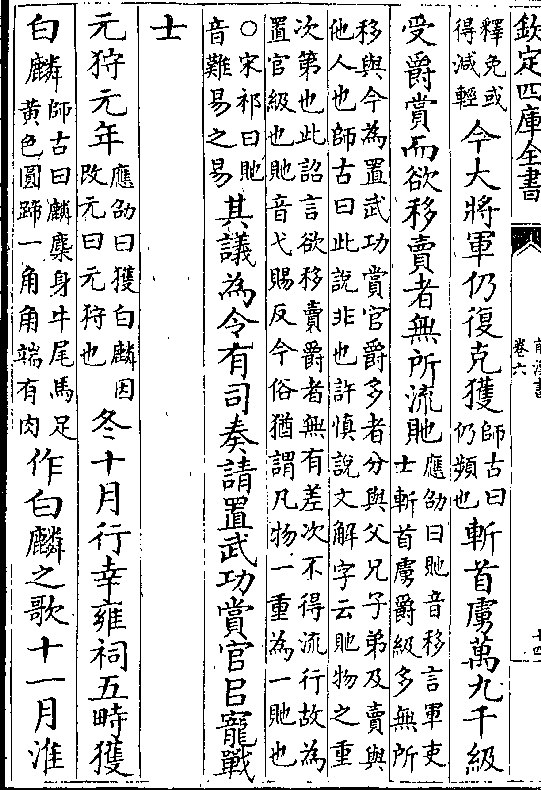 欽定四庫全書
前漢書
卷六
十四
釋免或
得減輕
今大將軍仍復克獲
師古曰
仍頻也
斬首虜萬九千級
受爵賞而欲移賣者無所流貤
應劭曰貤音移言軍吏
士斬首虜爵級多無所
移與今為置武功賞官爵多者分與父兄子弟及賣與
他人也師古曰此說非也許慎說文解字云貤物之重
次第也此詔言欲移賣爵者無有差次不得流行故為
置官級也貤音弋賜反今俗猶謂凡物一重為一貤也
○宋祁曰貤
音難易之易
其議為令有司奏請置武功賞官㠯寵戰
士
元狩元年
應劭曰獲白麟因
改元曰元狩也
冬十月行幸雍祠五畤獲
白麟
師古曰麟麋身牛尾馬足
黃色圓蹄一角角端有肉
作白麟之歌十一月淮